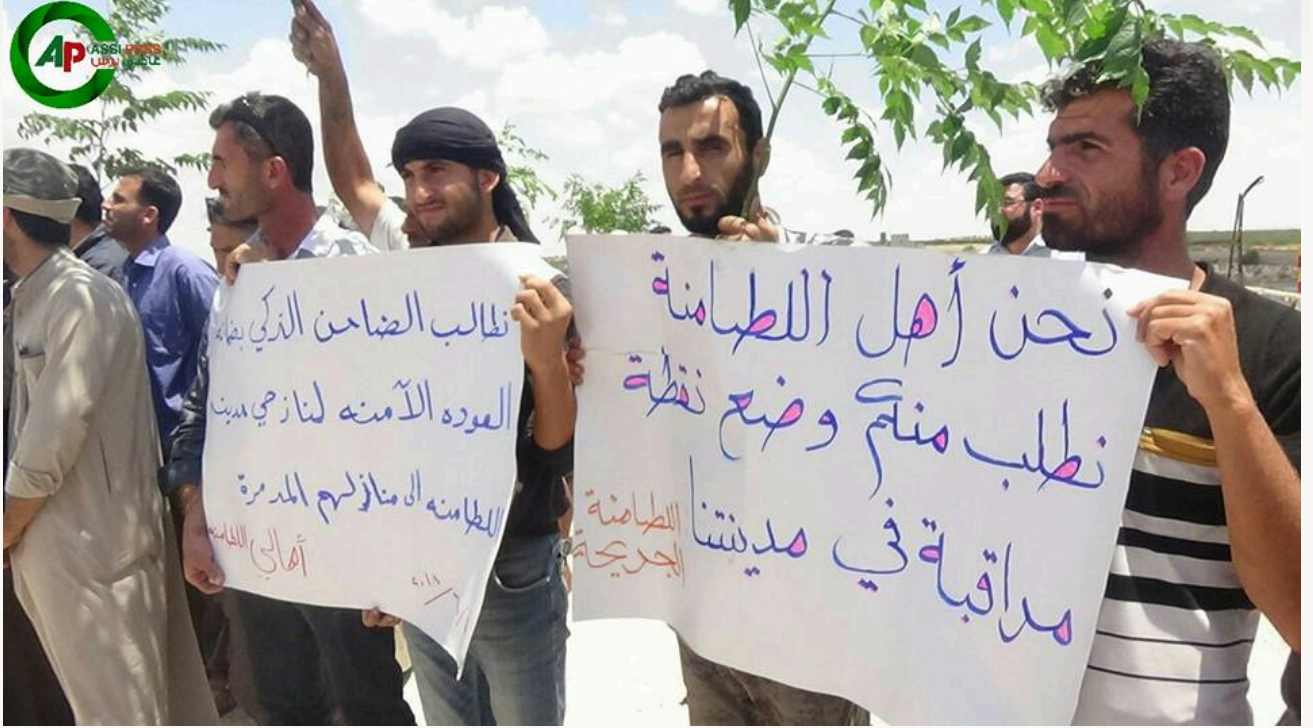 AP
ASSI PRESS
عاصي برس
نطالب الضامن التركي بضمان
العوده الآمنه لنازحي مدينة
اللطامنه الى منازلهم المدمرة
أهالي اللطامنه
٢٠١٨/٦/
نحن أهل اللطامنة
نطلب منكم وضع نقطة
مراقبة في مدينتنا
اللطامنة
الجريحة